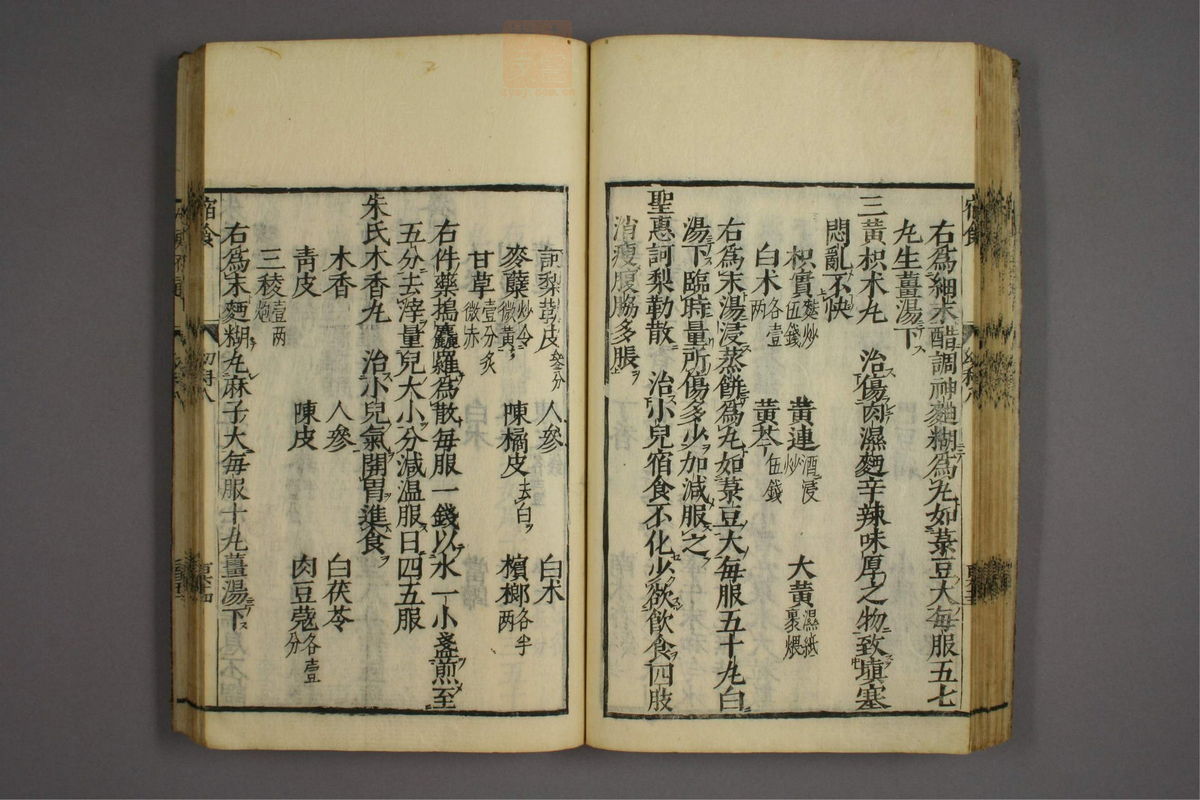 右爲細末醋調神麯糊爲丸如菉豆大每服五七
丸生薑湯下
三黃枳朮丸　治傷肉濕麵辛辣味厚之物致塡塞
悶亂不快
枳實麩炒伍錢　黃連酒浸炒　大黃濕紙裹煨
白朮各壹兩　黃芩伍錢
右爲末湯浸蒸餠爲丸如菉豆大每服五十丸白
湯下臨時量所傷多少加減服之
聖惠訶梨勒散　治小兒宿食不化少欲飮食四肢
消瘦腹脇多脹
訶梨勒皮叄分　人參　白朮
麥蘖炒令微黃　陳橘皮去白　檳榔各半兩
甘草壹分炙微赤
右件藥搗麤羅爲散每服一錢以水一小盞煎至
五分去滓量兒大小分減溫服日四五服
朱氏木香丸　治小兒氣開胃進食
木香　人參　白茯苓
靑皮　陳皮　肉豆蔲各壹分
三稜壹兩炮
右爲末麵糊丸麻子大每服十丸薑湯下
宿食